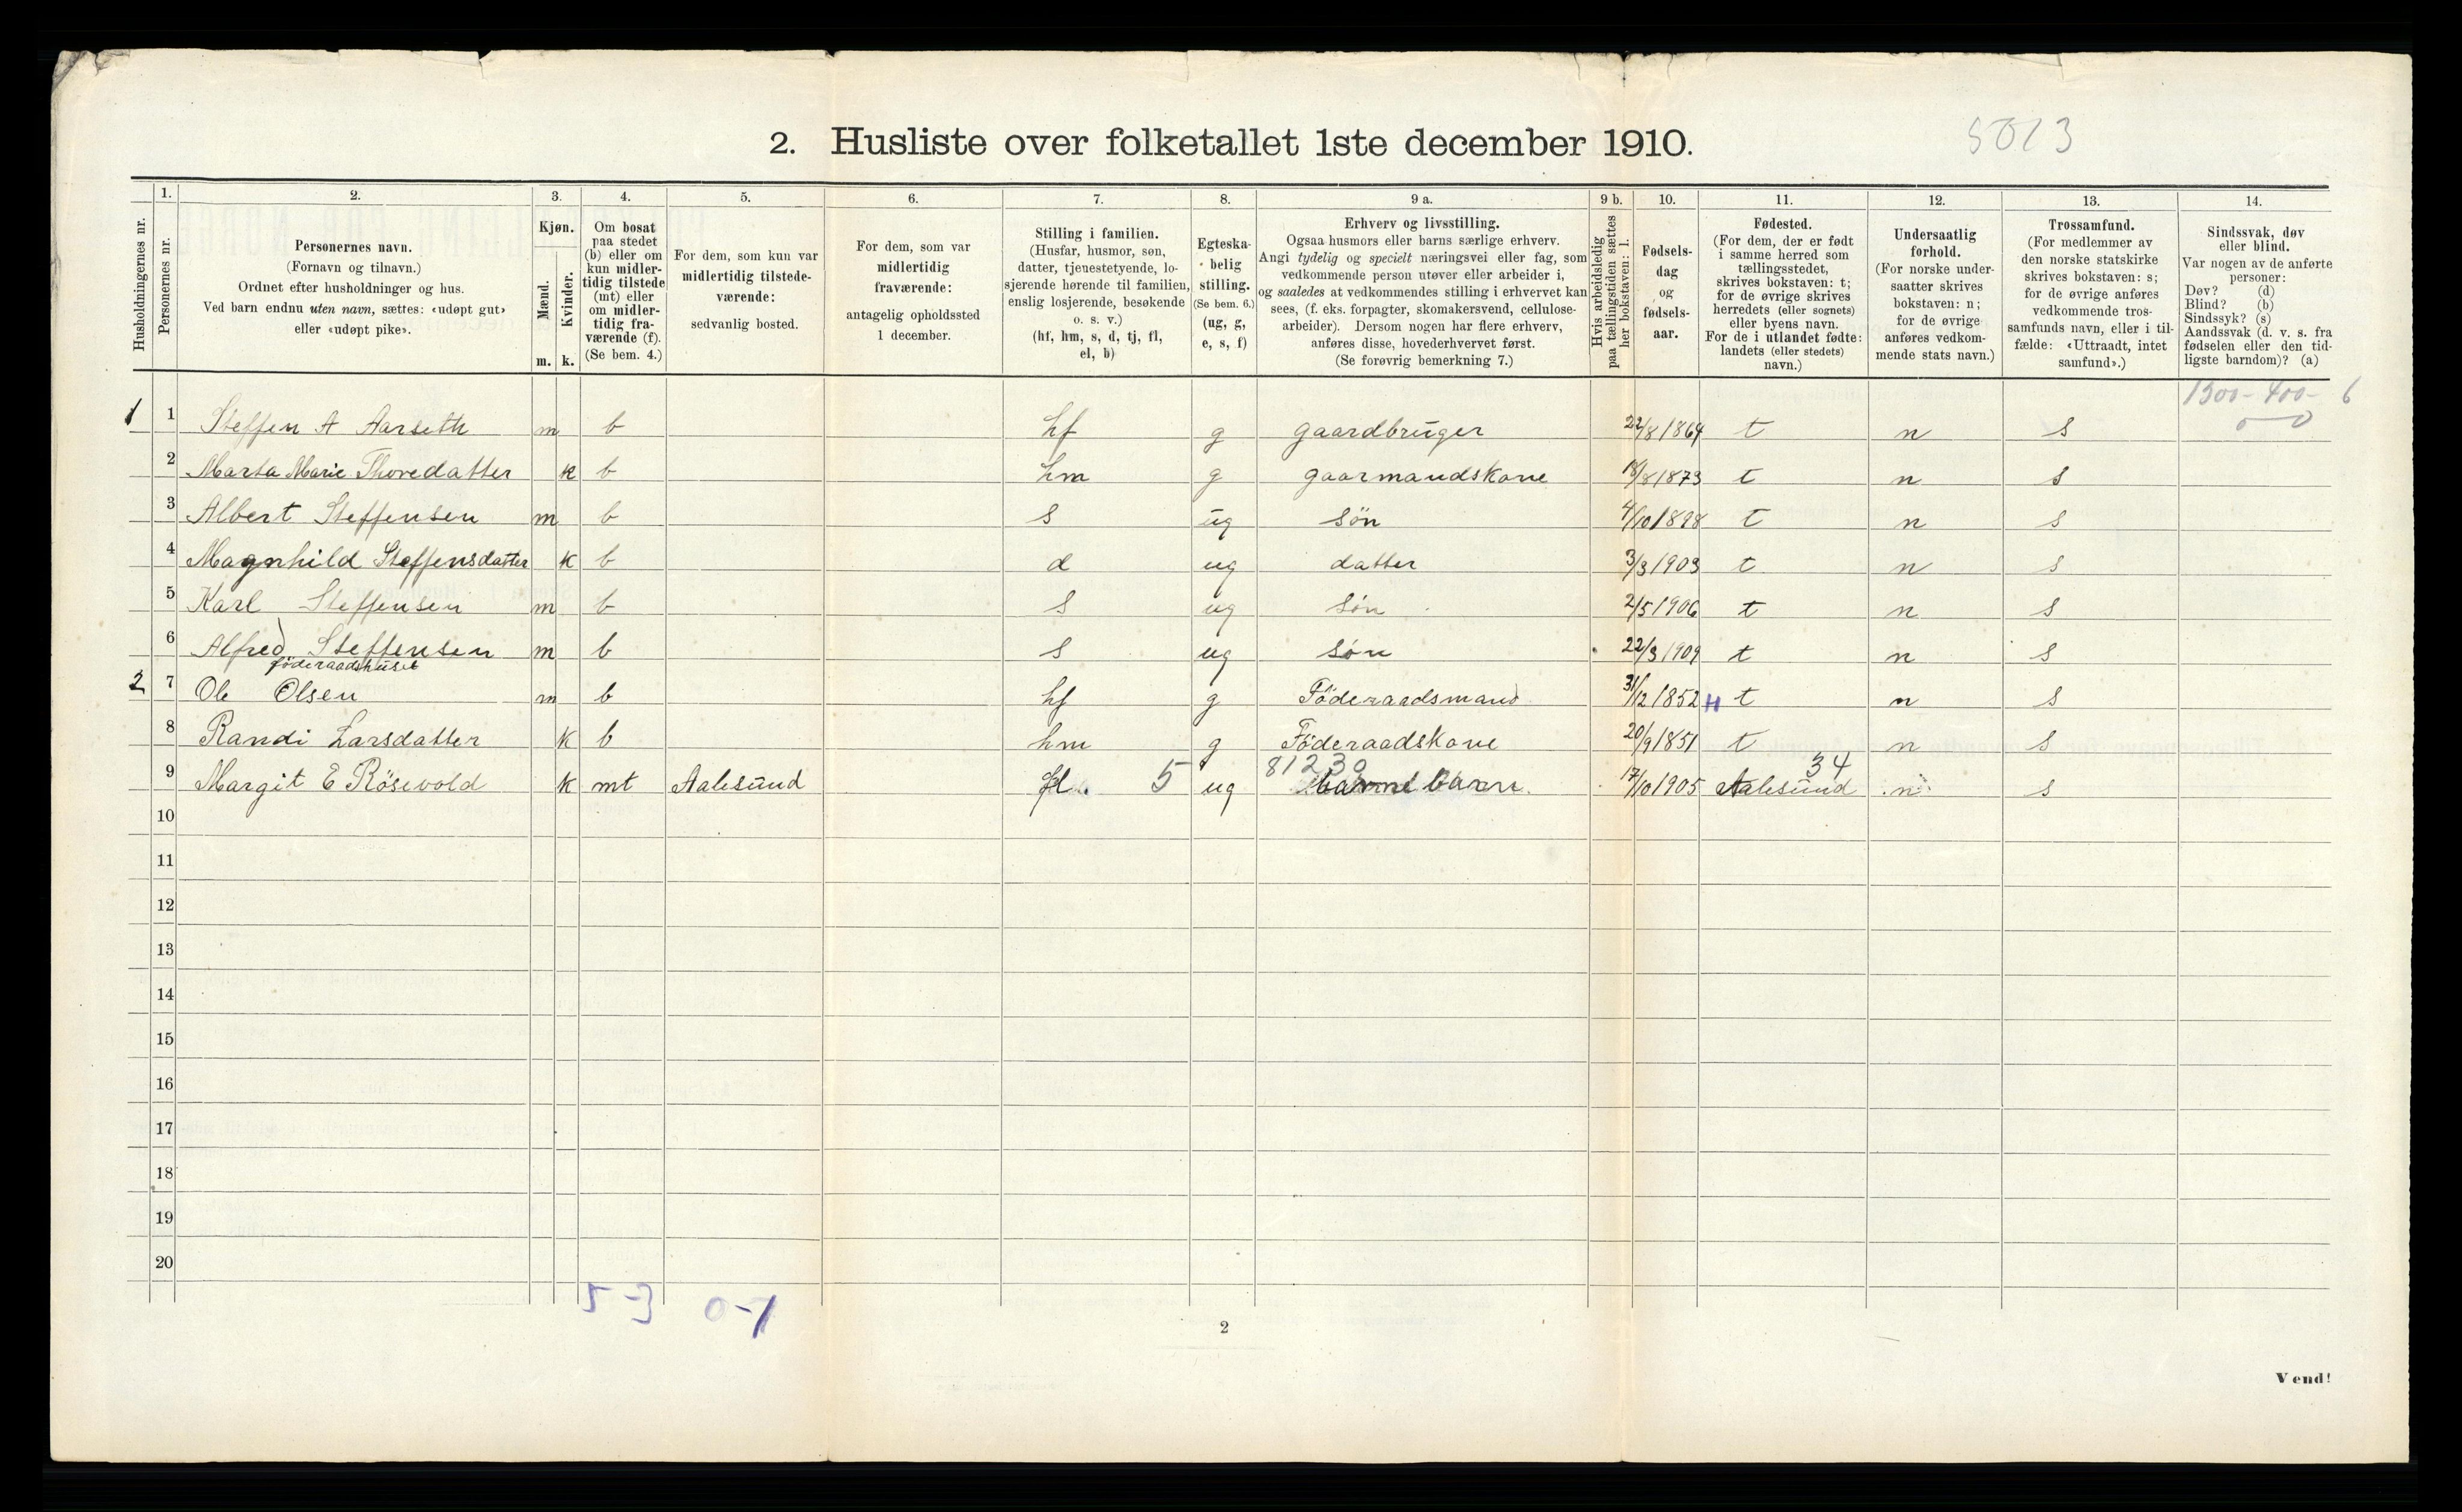 2. Husliste over folketallet 1ste december 1910.
5013
Husholdningernes nr.
1.
Personernes nr.
2.
Personernes navn.
(Fornavn og tilnavn.)
Ordnet efter husholdninger og hus.
Ved barn endnu uten navn, sættes: «udøpt gut»
eller «udøpt pike».
3.
Kjøn.
Mænd.
Kvinder.
m. k.
4.
Om bosat
paa stedet
(b) eller om
kun midler-
tidig tilstede
(mt) eller
om midler-
tidig fra-
værende (f).
(Se bem. 4.)
5.
For dem, som kun var
midlertidig tilstede-
værende:
sedvanlig bosted.
6.
For dem, som var
midlertidig
fraværende:
antagelig opholdssted
1 december.
7.
Stilling i familien.
(Husfar, husmor, søn,
datter, tjenestetyende, lo-
sjerende hørende til familien,
enslig losjerende, besøkende
o. s. v.)
(hf, hm, s, d, tj, fl,
el, b)
8.
Egteska-
belig
stilling.
(Se bem. 6.)
(ug, g,
e, s, f)
9 a.
Erhverv og livsstilling.
Ogsaa husmors eller barns særlige erhverv.
Angi tydelig og specielt næringsvei eller fag, som
vedkommende person utøver eller arbeider i,
og saaledes at vedkommendes stilling i erhvervet kan
sees, (f. eks. forpagter, skomakersvend, cellulose-
arbeider). Dersom nogen har flere erhverv,
anføres disse, hovederhvervet først.
(Se forøvrig bemerkning 7.)
9 b.
Hvis arbeidsledig
paa tællingstiden sættes
her bokstaven: l.
10.
Fødsels-
dag
og
fødsels-
aar.
11.
Fødested.
(For dem, der er født
i samme herred som
tællingsstedet,
skrives bokstaven: t;
for de øvrige skrives
herredets (eller sognets)
eller byens navn.
For de i utlandet fødte:
landets (eller stedets)
navn.)
12.
Undersaatlig
forhold.
(For norske under-
saatter skrives
bokstaven: n;
for de øvrige
anføres vedkom-
mende stats navn.)
13.
Trossamfund.
(For medlemmer av
den norske statskirke
skrives bokstaven: s;
for de øvrige anføres
vedkommende tros-
samfunds navn, eller i til-
fælde: «Uttraadt, intet
samfund».)
14.
Sindssvak, døv
eller blind.
Var nogen av de anførte
personer:
Døv? (d)
Blind? (b)
Sindssyk? (s)
Aandssvak (d. v. s. fra
fødselen eller den tid-
ligste barndom)? (a)
1300-400-6
0-0
1 1 Steffen A Aarseth m b hf g gaardbruger 22/8 1864 t n s
2 Marta Marie Thoredatter k b hm g gaarmandskone 18/8 1873 t n s
3 Albert Steffensen m b s ug søn 4/10 1898 t n s
4 Magnhild Steffensdatter k b d ug datter 3/3 1903 t n s
5 Karl Steffensen m b s ug søn 2/5 1906 t n s
6 Alfred Steffensen m b s ug søn 22/3 1909 t n s
föderaadshuset
2 7 Ole Olsen m b hf g Föderaadsmand 31/12 1852 H t n s
8 Randi Larsdatter k b hm g Föderaadskone 20/9 1851 t n s
81230 34
9 Margit E Rösevold k mt Aalesund fl. 5 ug barn 17/10 1905 Aalesund n s
10
11
12
13
14
15
16
17
18
19
20
5-3 0-1
2
Vend!